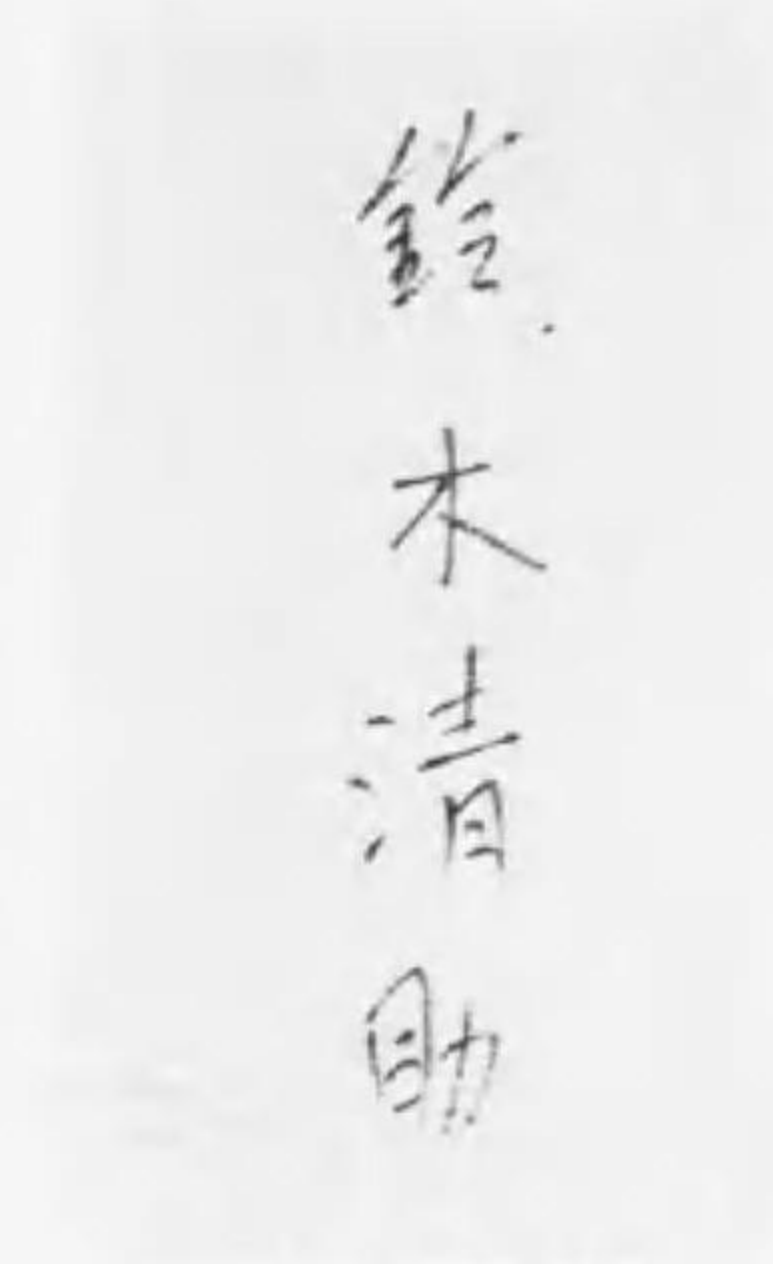 鈴木清助